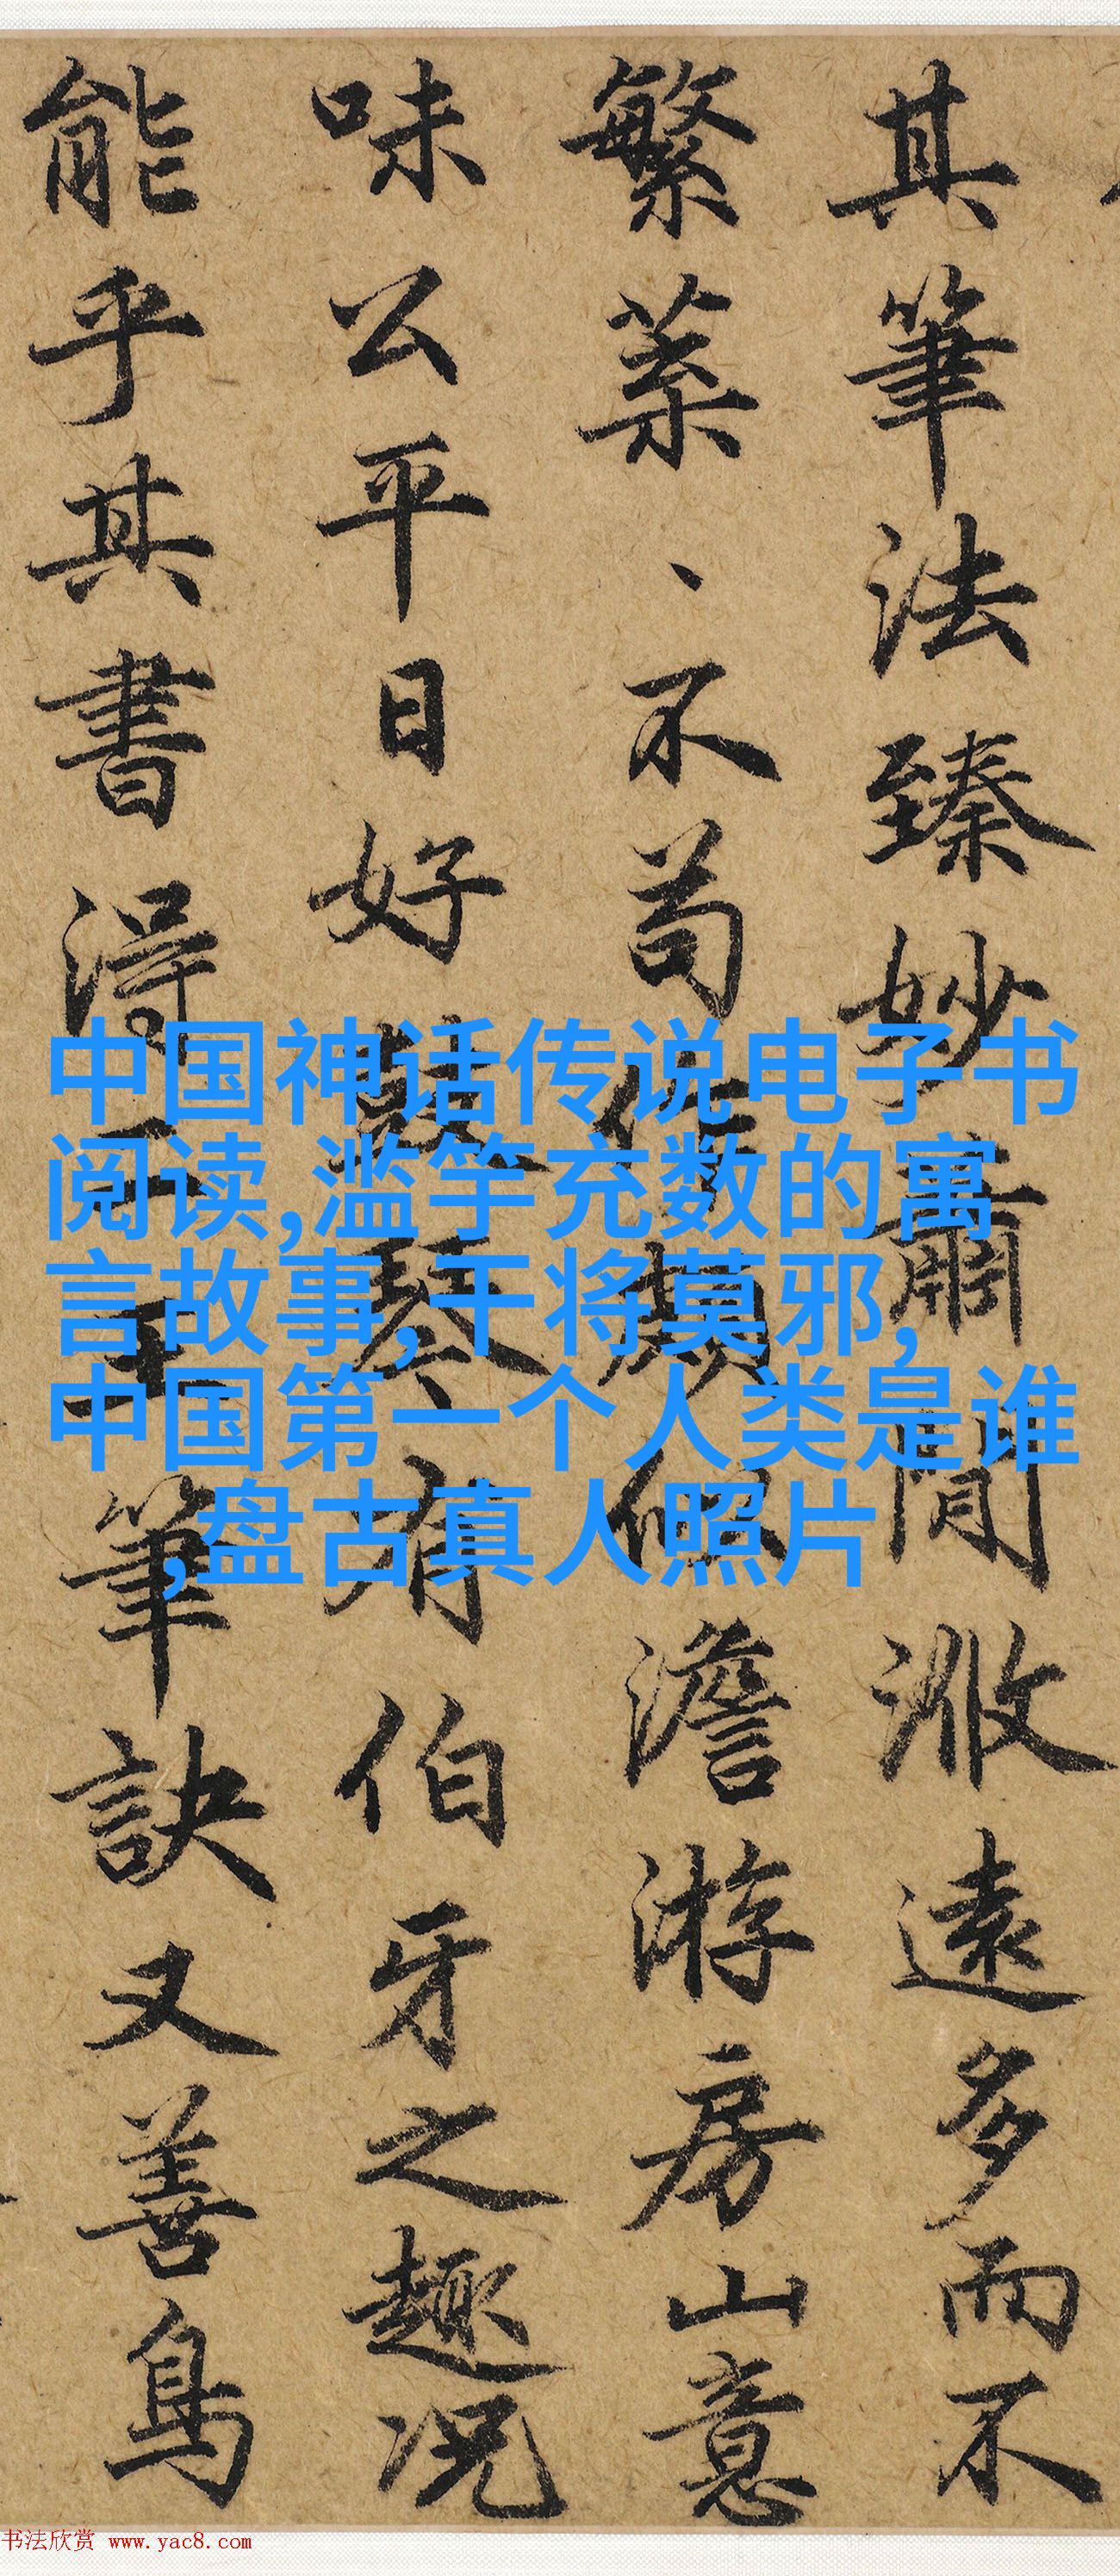 其筆法臻妙蕭閒遠多而不
繁葉、不苟作頗似澹游房山意
味公平日好鼓琴有伯牙之趣況
能乎其書得二王筆訣又善鳥
中国神话传说电子书
阅读,滥竽充数的寓
言故事,干将莫邪,
中国第一个人类是谁
,盘古真人照片
书法欣赏 www.yac8.com